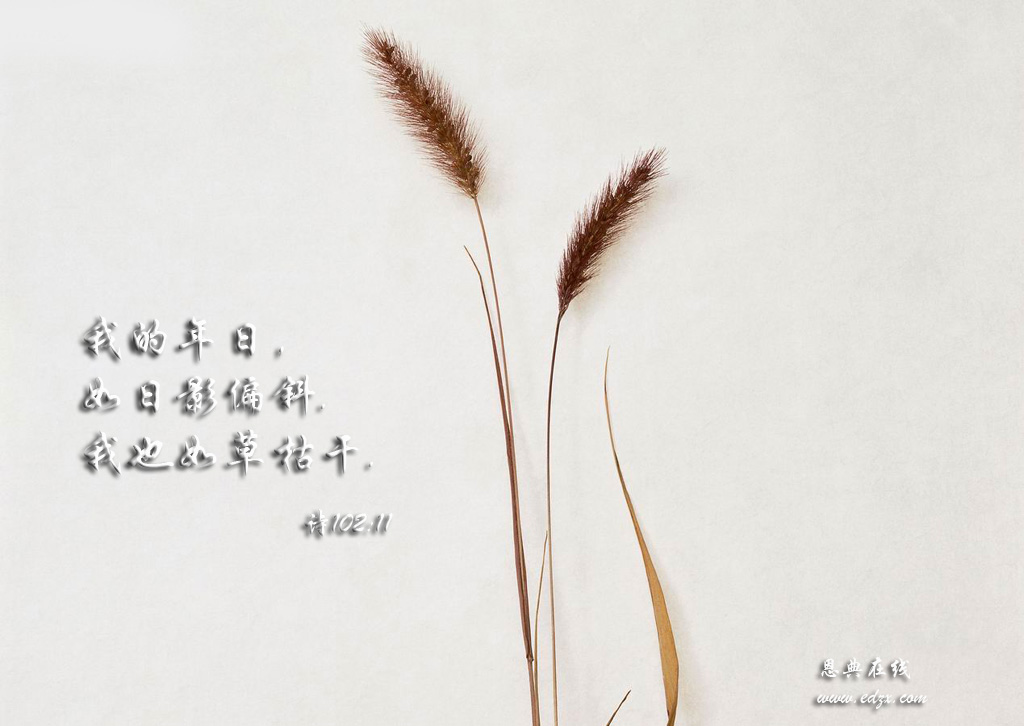 我的年日，
如日影偏斜.
我也如草枯干.
诗102:11
恩典在线
www.edzx.com